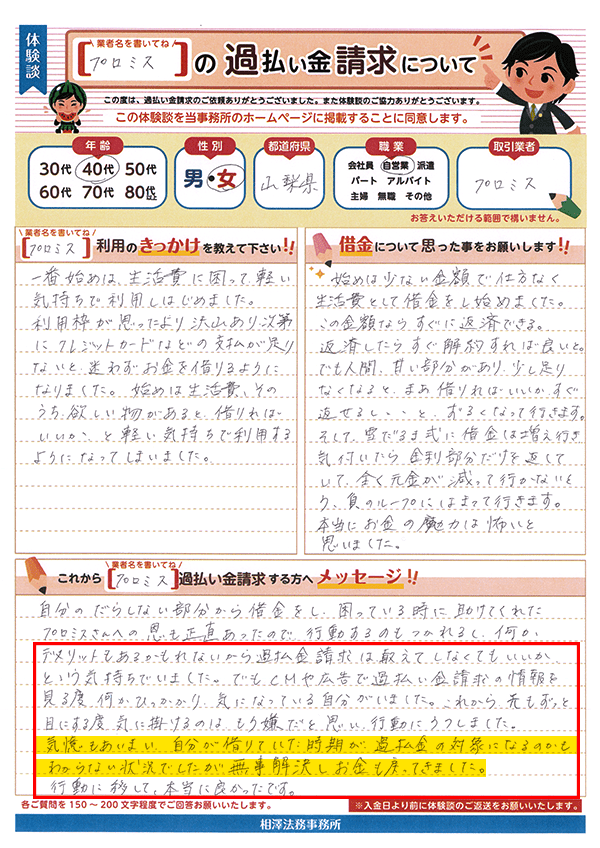 体験談
業者名を書いてね
[プロミス]の過払い金請求について
この度は、過払い金請求のご依頼ありがとうございました。また体験談のご協力ありがとうございます。
この体験談を当事務所のホームページに掲載することに同意します。
年齢
30代 40代 50代
60代 70代 80代以上
性別
男・女
都道府県
山梨県
職業
会社員 自営業 派遣
パート アルバイト
主婦 無職 その他
取引業者
プロミス
お答えいただける範囲で構いません。
業者名を書いてね
[プロミス]利用のきっかけを教えて下さい!!
一番始めは、生活費に困って軽い
気持ちで利用しはじめました。
利用枠が思ったより沢山あり、次第
にクレジットカードなどの支払が足り
ないと、迷わずお金を借りるように
なりました。始めは生活費、その
うち欲しい物があると、借りれば
いいか、と軽い気持ちで利用する
ようになってしまいました。
借金について思った事をお願いします!!
始めは少ない金額で仕方なく
生活費として借金をし始めました。
この金額ならすぐに返済できる。
返済したらすぐ解約すれば良いと。
でも人間、甘い部分があり、少し足り
なくなると、まあ借りればいいか、すぐ
返せるし、、と、ずるくなって行きます。
そして、雪だるま式に借金は増え行き
気付いたら金利部分だけを返して
いて、全く元金が減って行かないとい
う、負のループにはまって行きます。
本当にお金の魔力は怖いと
思いました。
業者名を書いてね
これから[プロミス]過払い金請求する方へメッセージ!!
自分のだらしない部分から借金をし、困っている時に助けてくれた
プロミスさんへの恩も正直あったので、行動するのもつかれるし、何か
デメリットもあるかもれないから過払金請求は敢えてしなくてもいいか
という気持ちでいました。でも、CMや広告で過払い金請求の情報を
見る度何かひっかかり、気になっている自分がいました。これから先もずっと
目にする度気に掛けるのはもう嫌だと思い、行動にうつしました。
気憶もあいまい、自分が借りていた時期が過払金の対象になるのかも
わからない状況でしたが無事解決しお金も戻ってきました。
行動に移して、本当に良かったです。
各ご質問を150〜200文字程度でご回答お願いいたします。
※入金日より前に体験談のご返送をお願いいたします。
相澤法務事務所